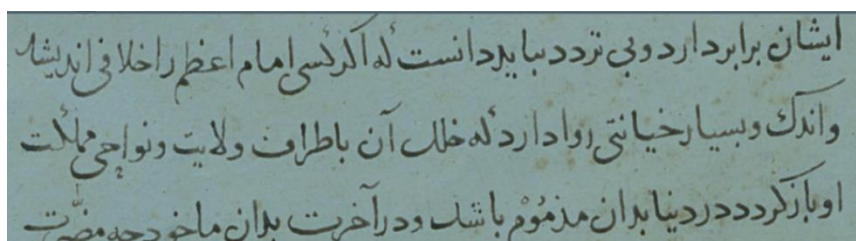 ایشان برابر دارد و بی تردد بباید دانست که اکر کسی امام اعظم را خلافی اندیشد
و اندک و بسیار خیانتی روا دارد که خلل آن باطراف ولایت و نواحی مملکت
او باز کردد در دنیا بدان مذموم باشد و در آخرت بدان ماخوذ چه مضرّت